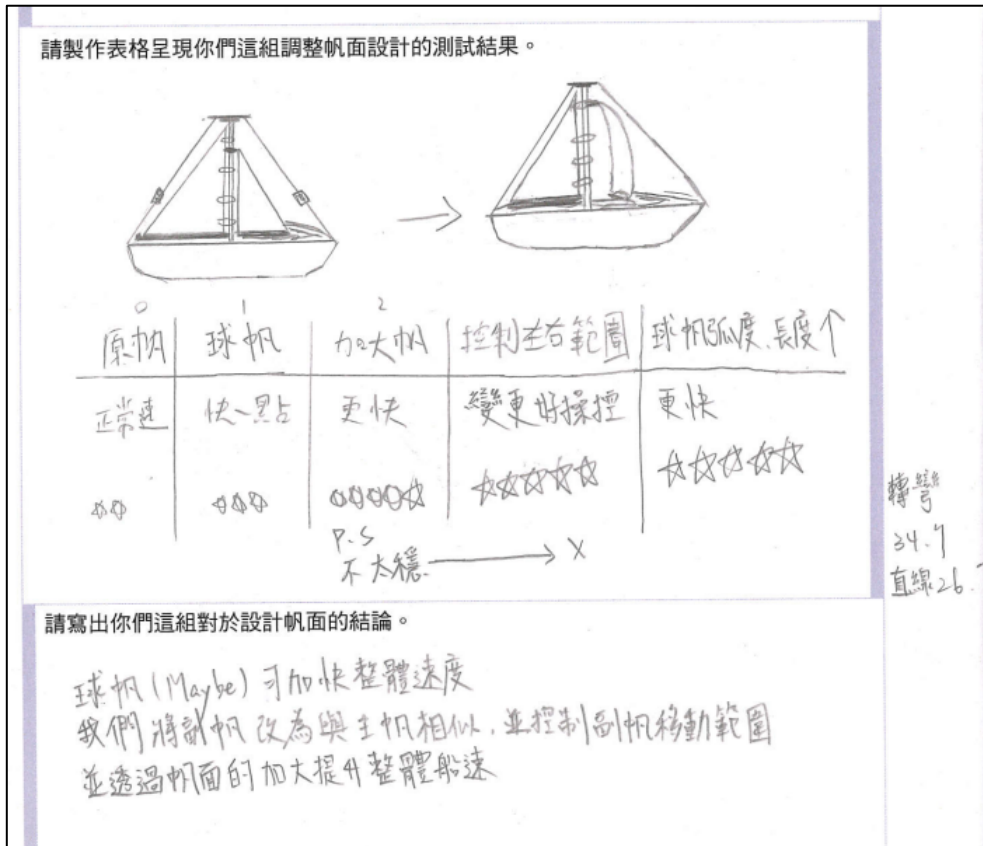 請製作表格呈現你們這組調整帆面設計的測試結果。
0 1 2
原帆 球帆 加大帆 控制左右範圍 球帆弧度、長度↑
正常速 快一點 更快 變更好操控 更快
☆☆ ☆☆☆ ☆☆☆☆☆ ☆☆☆☆☆ ☆☆☆☆☆
P.S
不太穩 → X
轉彎
34.7
直線26.
請寫出你們這組對於設計帆面的結論。
球帆(Maybe)可加快整體速度
我們將副帆改為與主帆相似,並控制副帆移動範圍
並透過帆面的加大提升整體船速